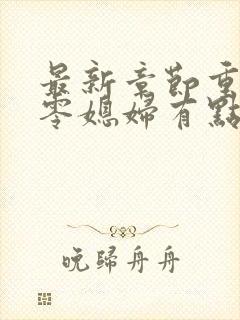 最新章節重
零媳婦有點
晚歸舟舟